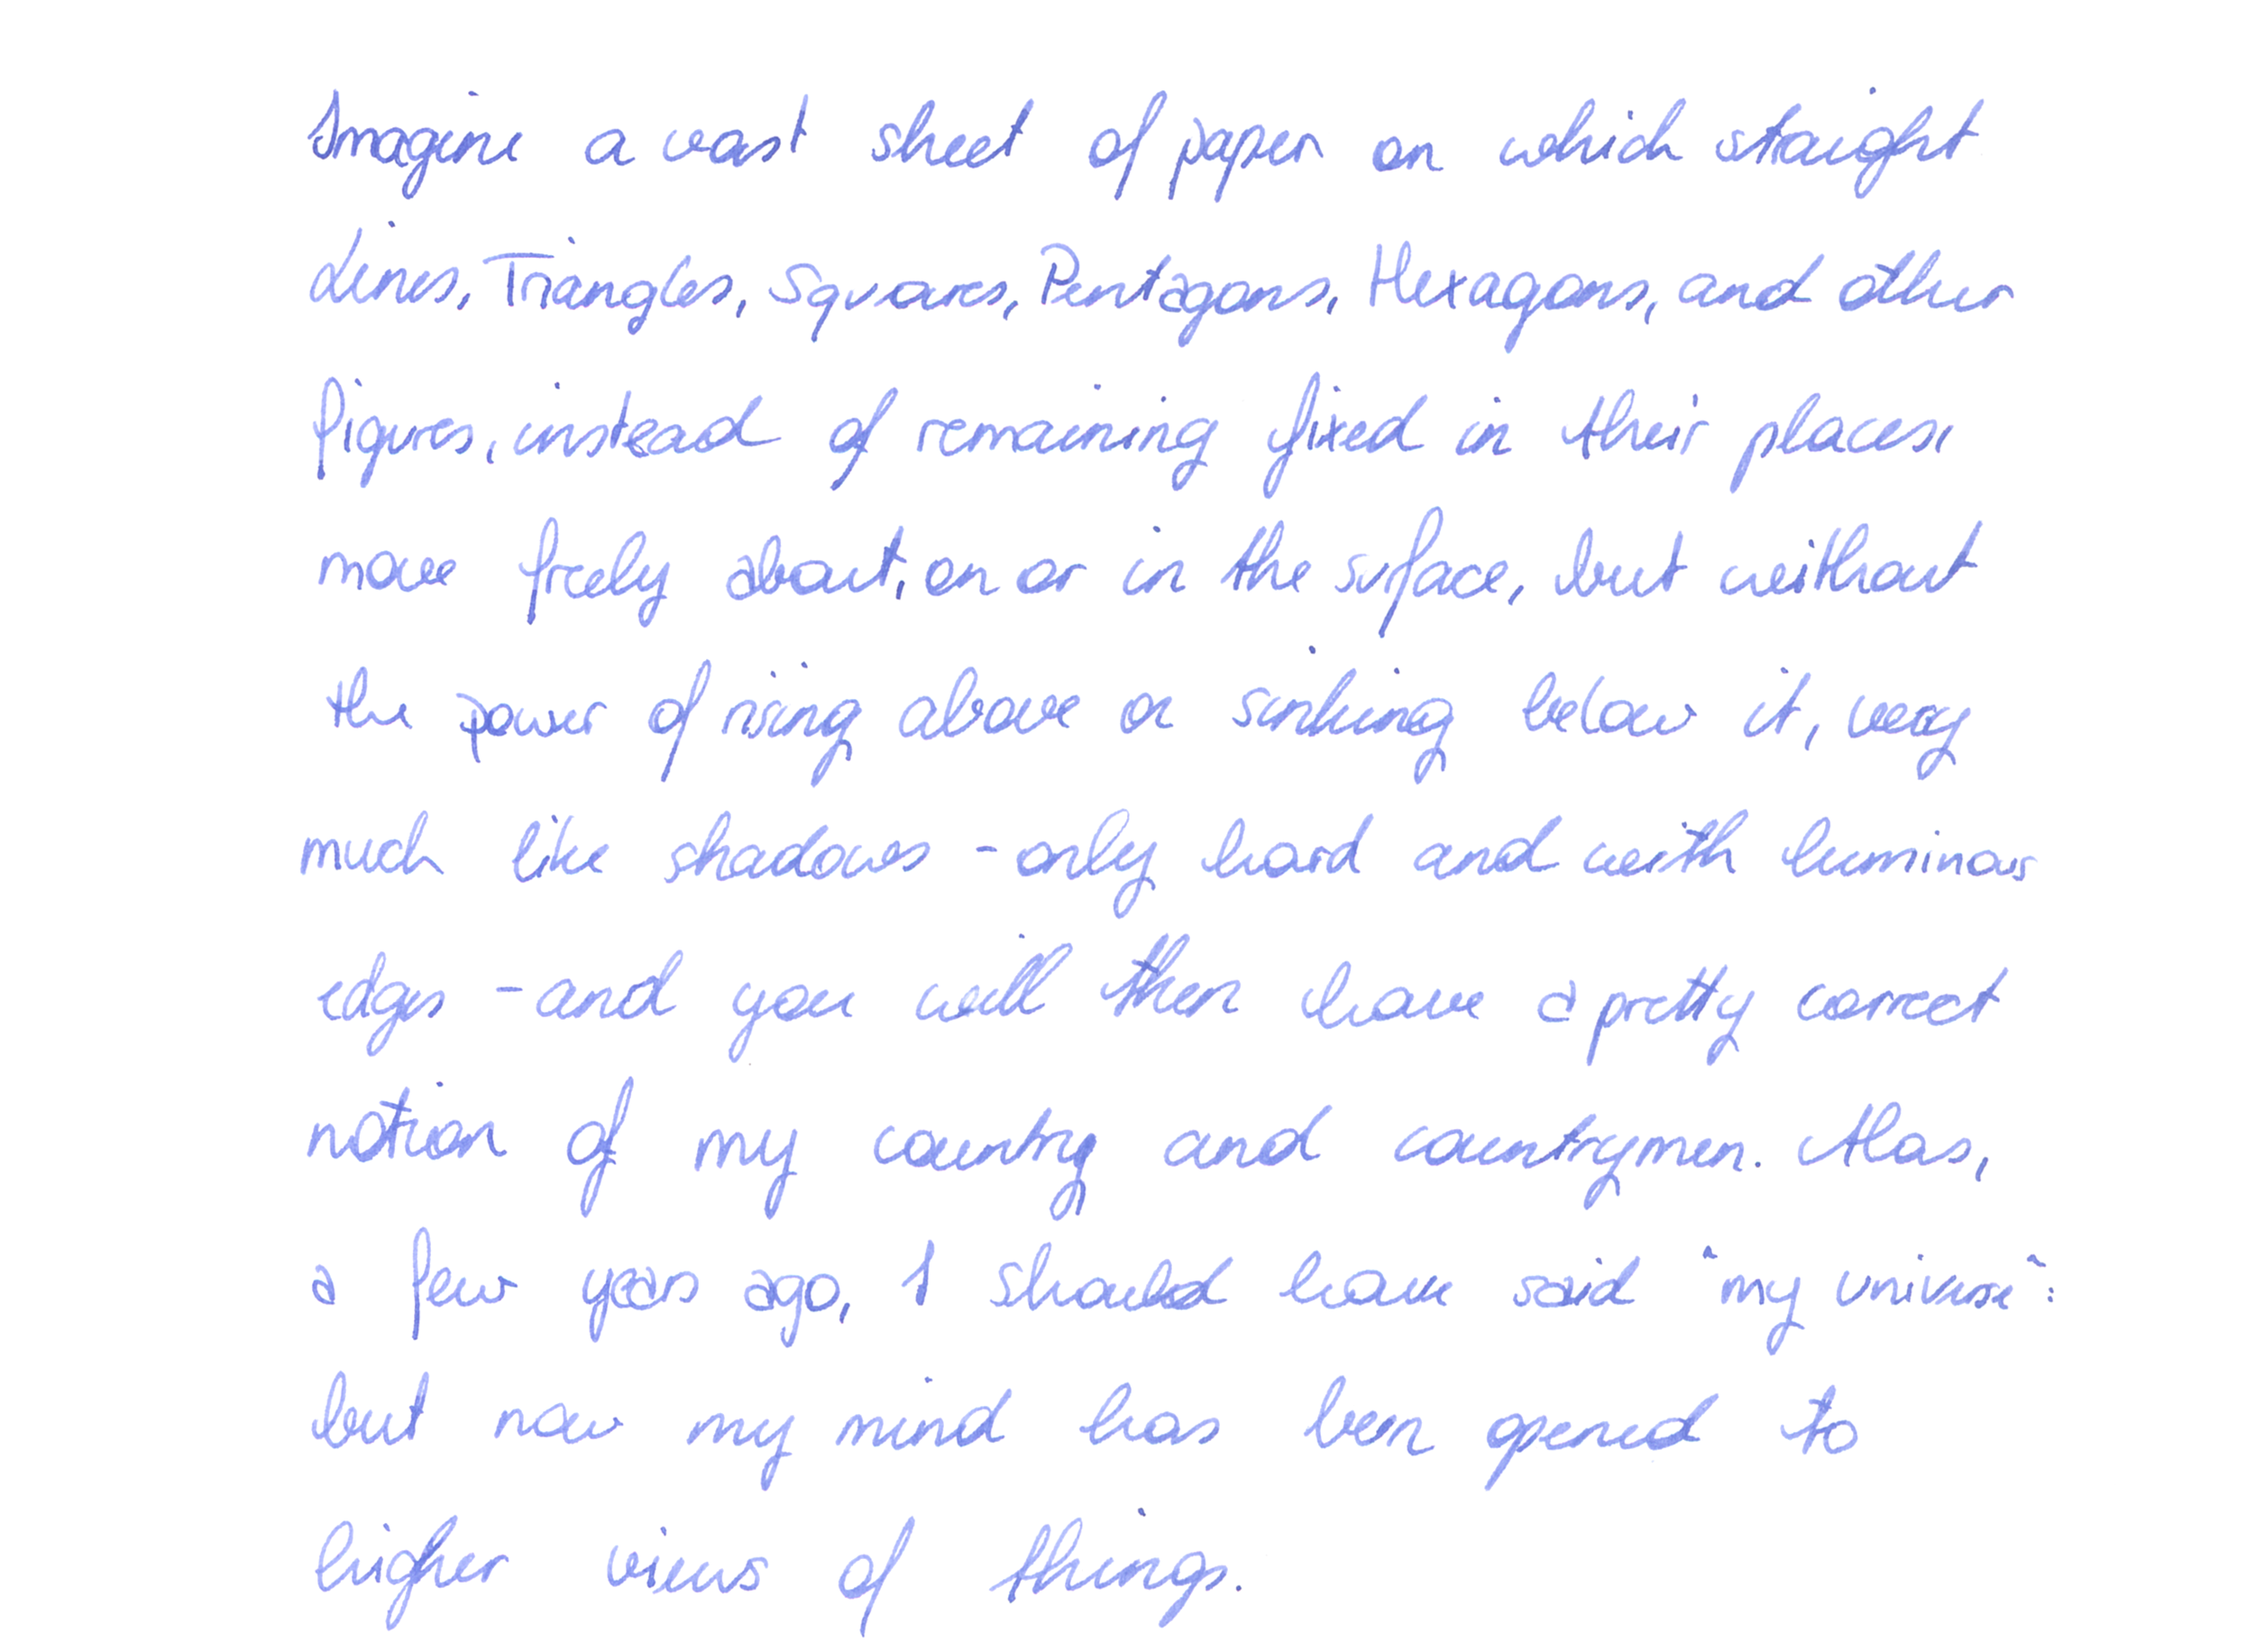 Imagine a vast sheet of paper on which straight
Lines, Triangles, Squares, Pentagons, Hexagons, and other
figures, instead of remaining fixed in their places,
move freely about, on or in the surface, but without
the power of rising above or sinking below it, very
much like shadows - only hard and with luminous
edges - and you will then have a pretty correct
notion of my country and countrymen. Alas,
a few years ago, I should have said "my universe":
but now my mind has been opened to
higher views of things.